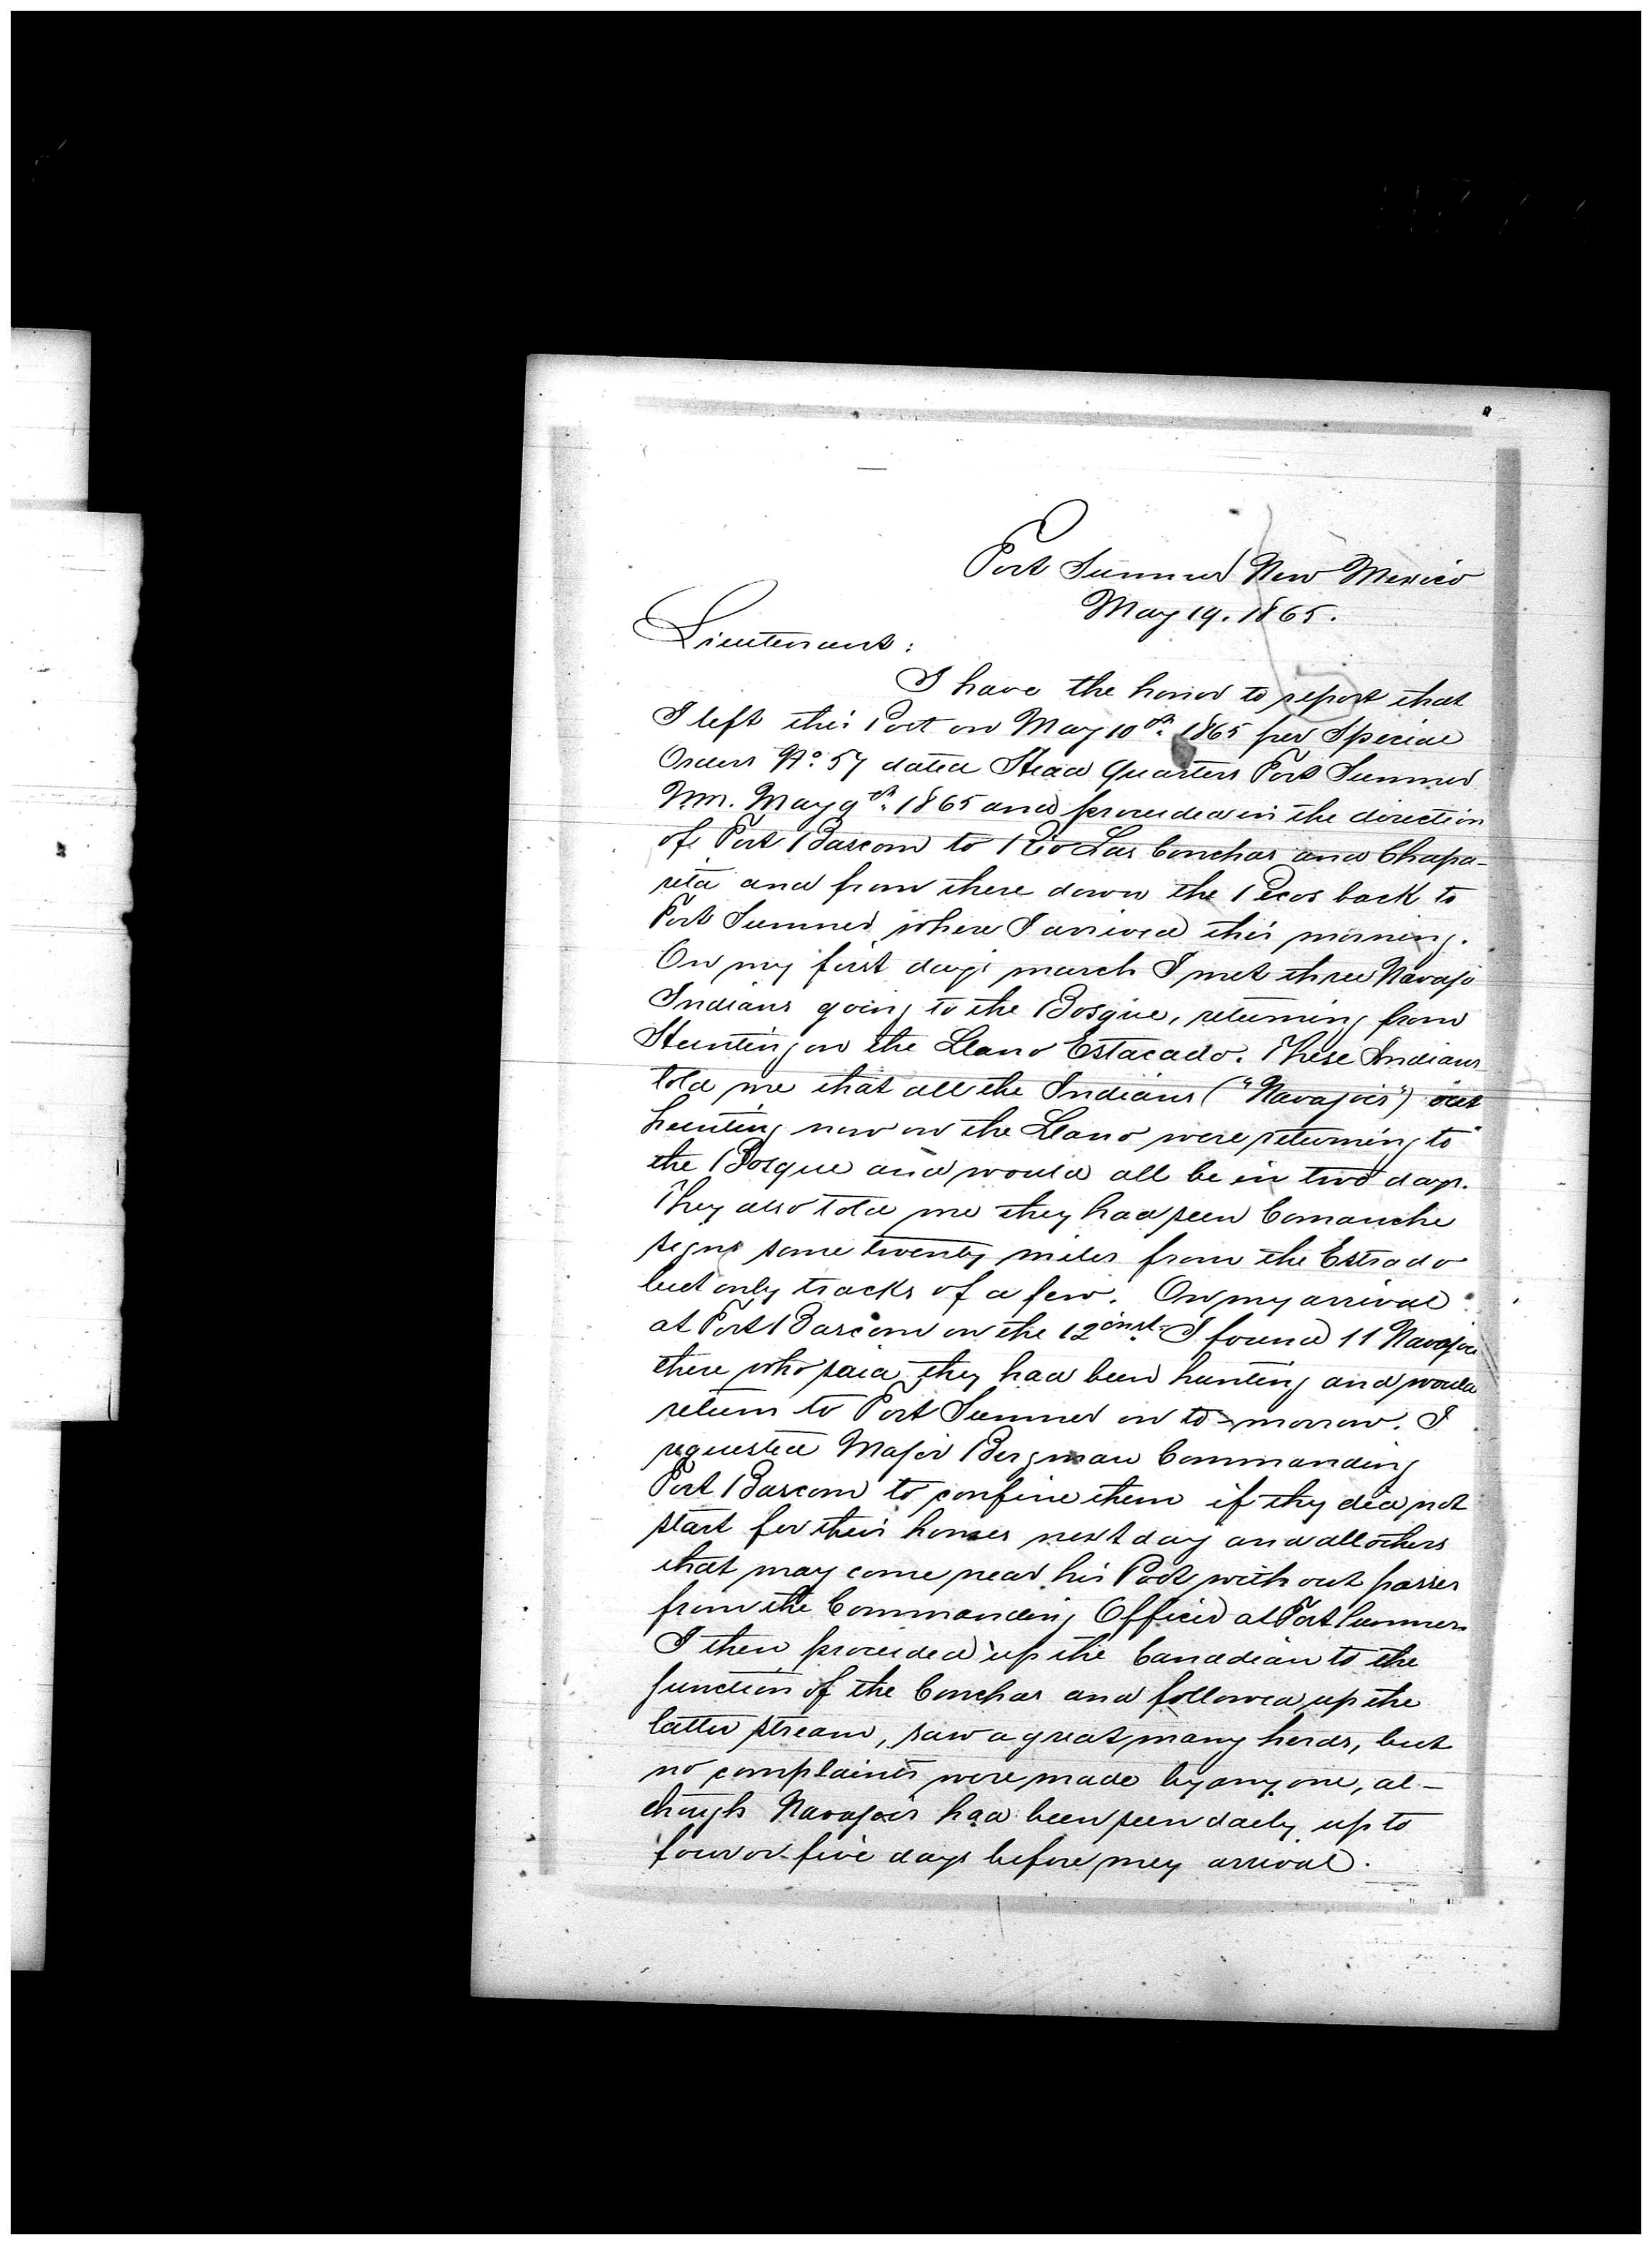 Fort Sumner New Mexico
May 19. 1865.
Lieutenant:
I have the honor to report that
I left this Post on May 10th. 1865 per Special
Orders No. 57 dated Head Quarters Fort Sumner
N.M. May 9th. 1865 and proceeded in the direction
of Fort Bascom to Rio Las Conchas and Chapa-
rita and from there down the Pecos back to
Fort Sumner where I arrived this morning.
On my first days march I met three Navajo
Indians going to the Bosque, returning from
Hunting on the Llano Estacado. These Indians
told me that all the Indians ("Navajoes") out
hunting now on the Llano were returning to
the Bosque and would all be in two days.
They also told me they had seen Comanche
signs some twenty miles from the Estrado
but only tracks of a few. On my arrival
at Fort Bascom on the 12 inst. I found 11 Navajoes
there who said they had been hunting and would
return to Fort Sumner on to-morrow. I
requested Major Bergman Commanding
Fort Bascom to confine them if they did not
start for their homes next day and all others
that may come near his Post with out passes
from the Commanding Officer at Fort Sumner.
I then proceeded up the Canadian to the
junction of the Conchas and followed up the
latter stream, saw a great many herds, but
no complaints were made by any one, al-
though Navajoes had been seen daily up to
four or five days before my arrival.